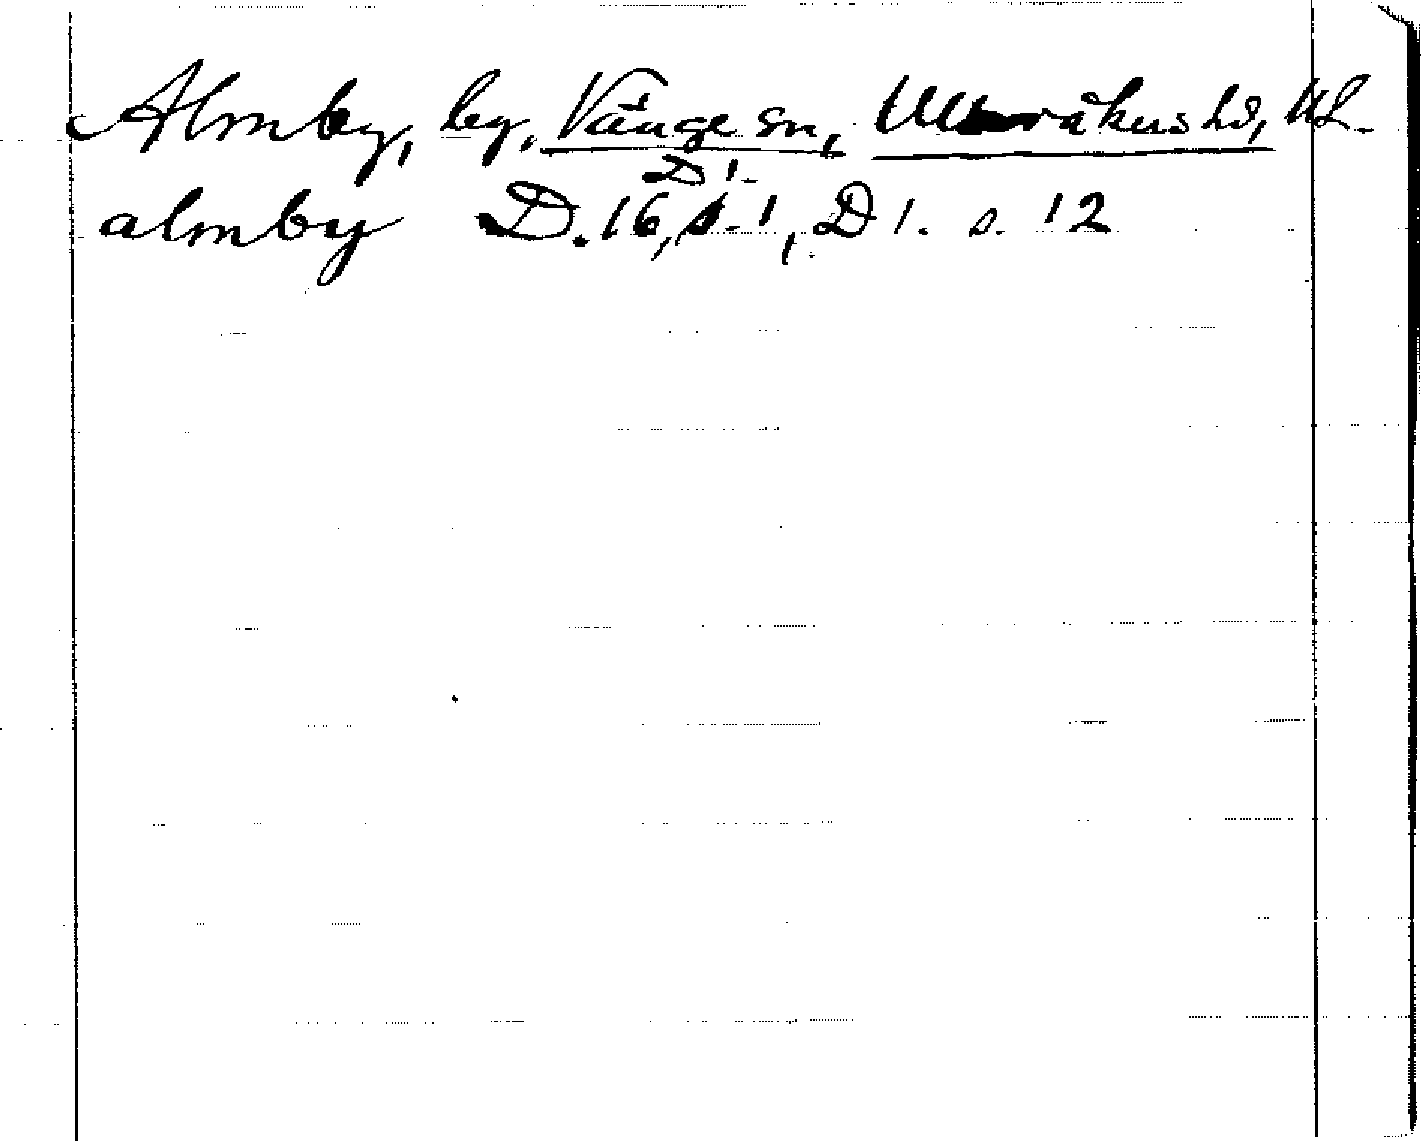 Almby, by, Vänge sn, Ulleråkus hd, UL.
D 1.
almby D. 16, s. 1, D 1. s. 12